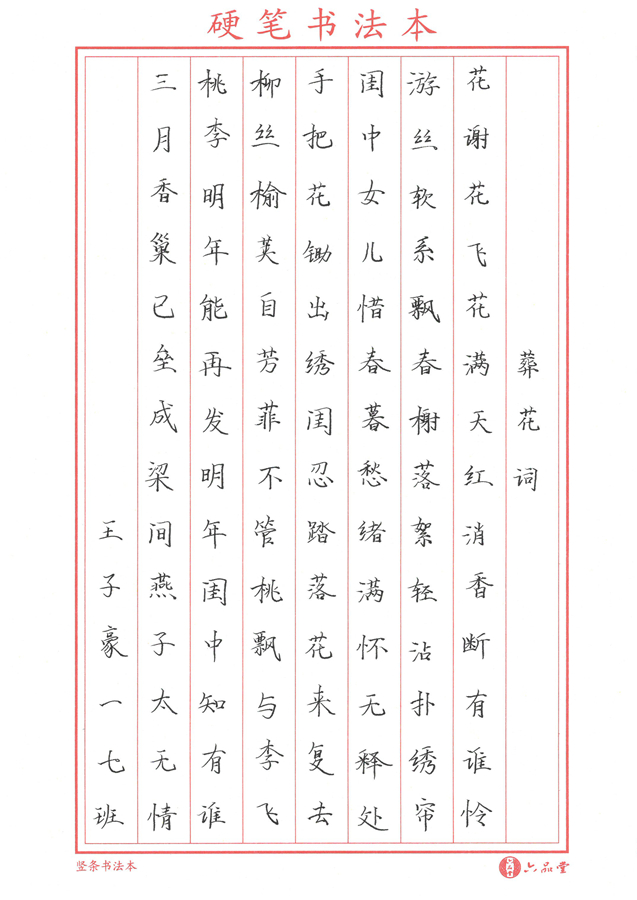 硬笔书法本
葬花词
花谢花飞花满天红消香断有谁怜
游丝软系飘春榭落絮轻沾扑绣帘
闺中女儿惜春暮愁绪满怀无释处
手把花锄出绣闺忍踏落花来复去
柳丝榆英自芳菲不管桃飘与李飞
桃李明年能再发明年闺中知有谁
三月香巢已垒成梁间燕子太无情
王子豪一七班
竖条书法本
六品堂